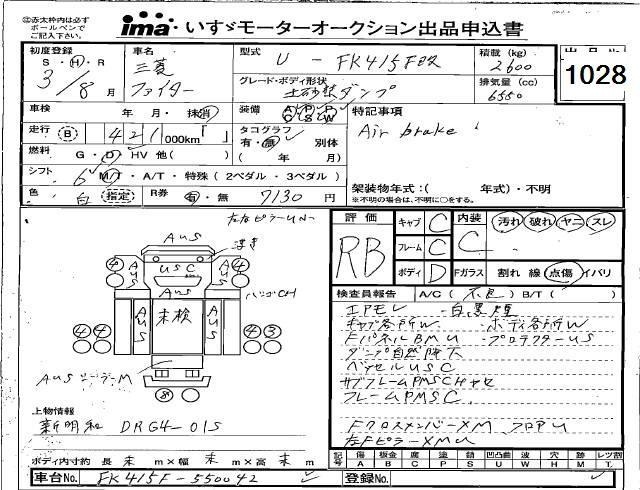 ㊟赤太枠内は必ず
ボールペンで
ご記入下さい。
ima いすゞモーターオークション出品申込書
初度登録 車名 型式 U - FK415F改 積載(kg) 2600
S・H・R 3/8月
三菱 ファイター
グレード・ボディ形状 土砂禁ダンプ
排気量(cc) 6550
1028
車検 年・月・抹消
装備 AC PS PW
特記事項
走行 B 421 000km「 」
タコグラフ 有・無 別体
Air brake
燃料 G・D・HV 他( )
( 年 月)
シフト 6 MT・A/T・特殊(2ペダル・3ペダル)
架装物年式:( 年式)・不明
色 白 指定 R券 有・無 7130円
※不明の場合は、不明に○をする。
評価 RB
キャブ C
フレーム C
ボディ D
内装 C 汚れ・破れ・ヤニ・スレ
Fガラス 割れ 線 点傷 イバリ
AuS
USC
AuS
未検
検査員報告 A/C( 不良 ) B/T( )
エアモレ ・白黒煙
キャブ各所W ・ボディ各所W
FパネルBMU ・プロテクターUS
ダンプ自然降下
ベッセルUSC
サブフレームPMSCH
フレームPMSC
FクロスメンバーXM フロアU
左FピラーXMU
上物情報
新明和 DRG4-01S
ボディ内寸約 長 未 m×幅 未 m×高 未 m
記号 傷A 板金B 腐C 塗P 錆S 凹凸曲U 波W 穴H 跡M レス/ミラ T.
車台No. FK415F-550042
登録No.